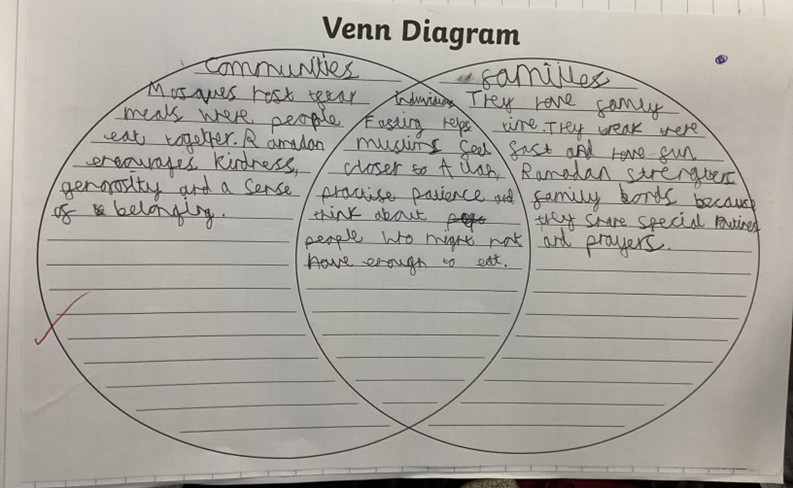 Venn Diagram
Communities
Mosques host iftar
meals where people
eat together. Ramadan
encourages kindness,
generosity and a sense
of belonging.
individuals
Fasting helps
muslims feel
closer to Allah,
practise patience and
think about
people who might not
have enough to eat.
families
They have family
time. They break there
fast and have fun
Ramadan strengthens
family bonds because
they share special routines
and prayers.